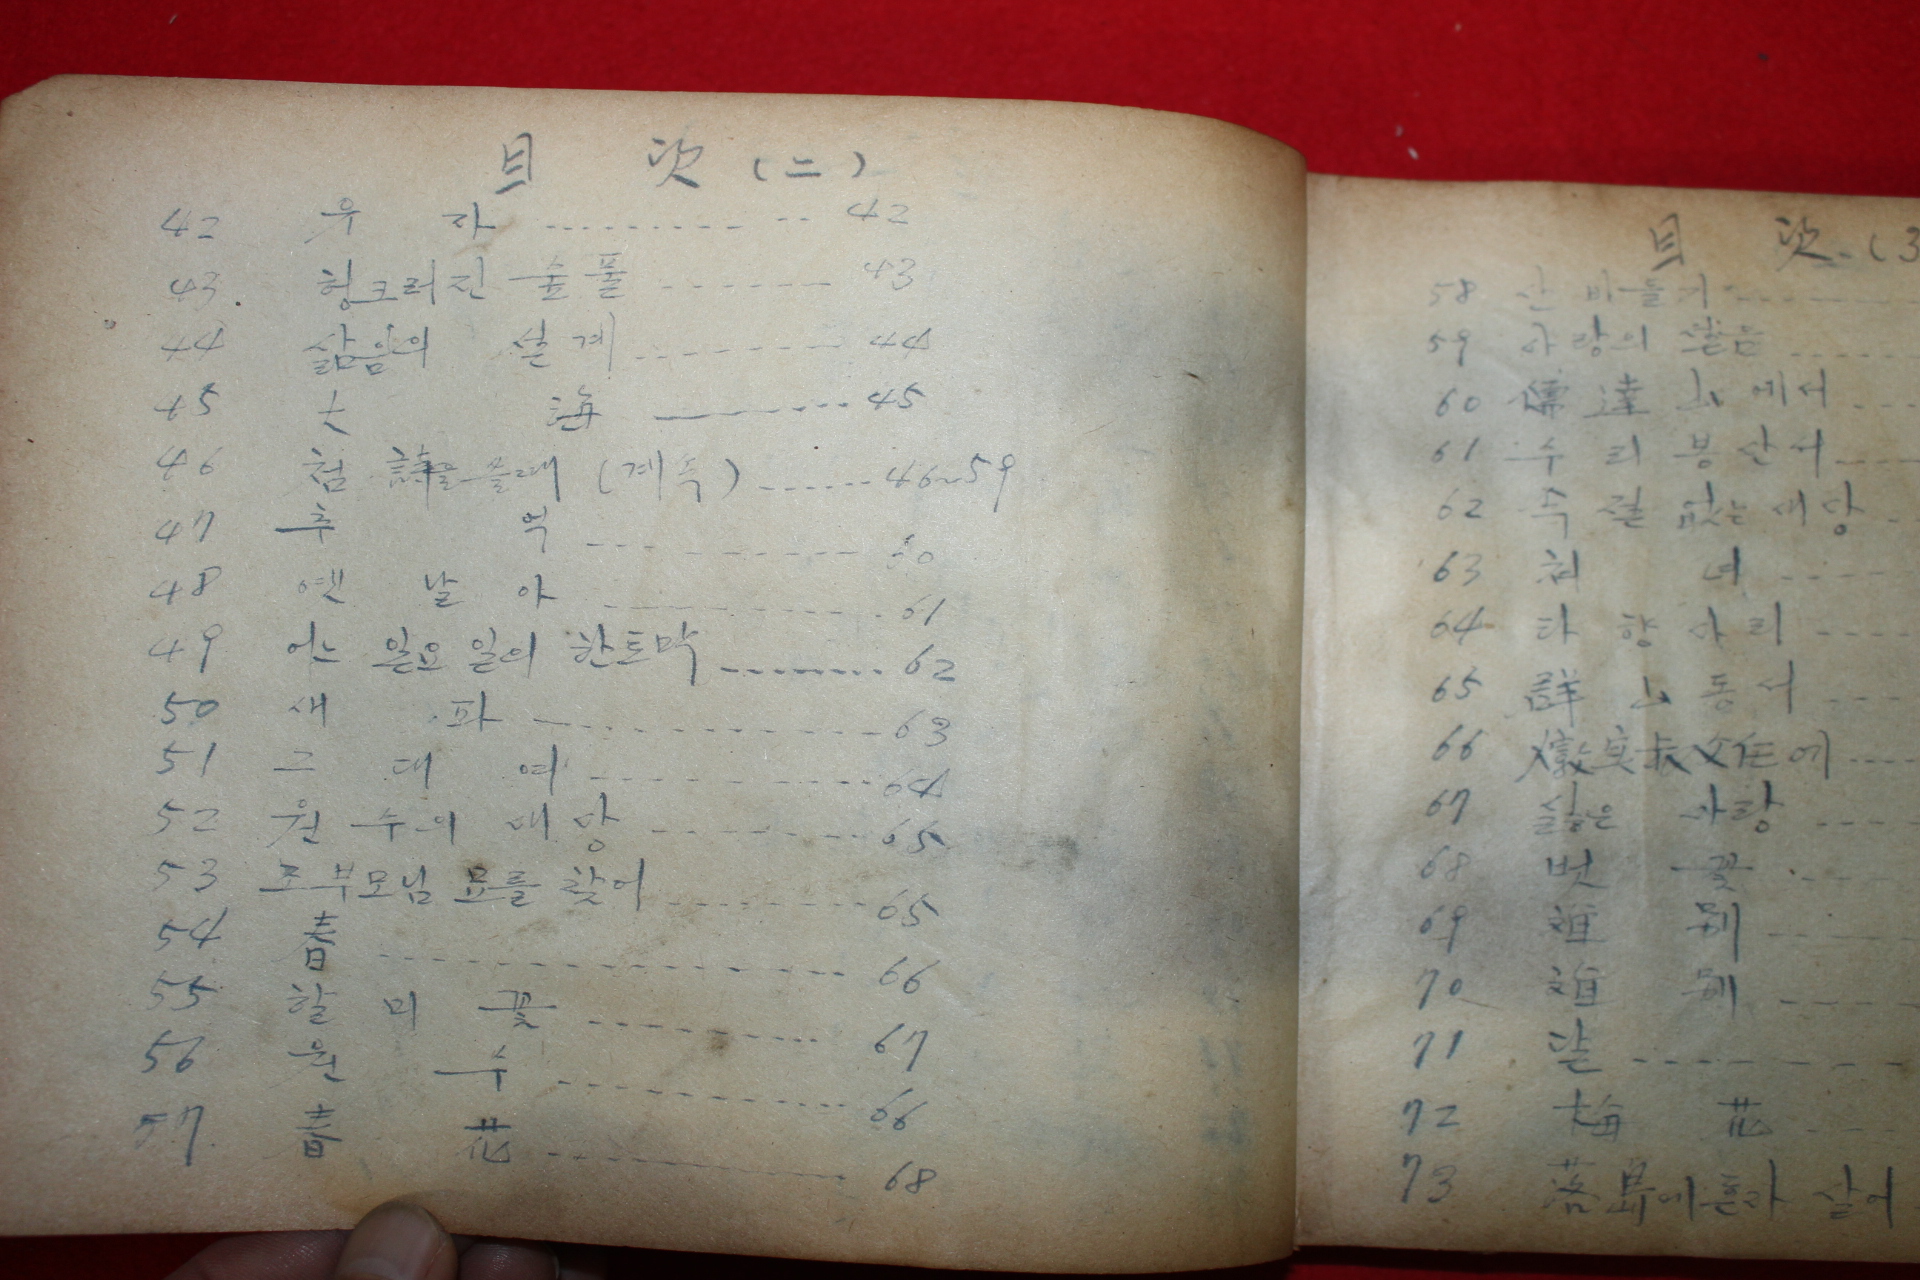 目 次 (二)
42 유 자 42
43 헝크러진 숲풀 43
44 삶음의 설계 44
45 大 海 45
46 첨 詩를 쓸때 (계속) 46~59
47 추 억 60
48 옛 날 아 61
49 어느 일요일의 한토막 62
50 새 파 63
51 그 대 여 64
52 원수의 대망 65
53 조부모님 묘를 찾어 65
54 春 66
55 할 미 꽃 67
56 원 수 66
57 春 花 68
目 次 (3
58 산
59 사랑의
60 儒達山에서
61 수리봉산서
62 속절없는 세상
63 처 녀
64 타향사리
65 群山동서
66
67 싫은 사랑
68 벗 꽃
69 別
70 別
71 달
72 梅 花
73 落島에 혼자 살어